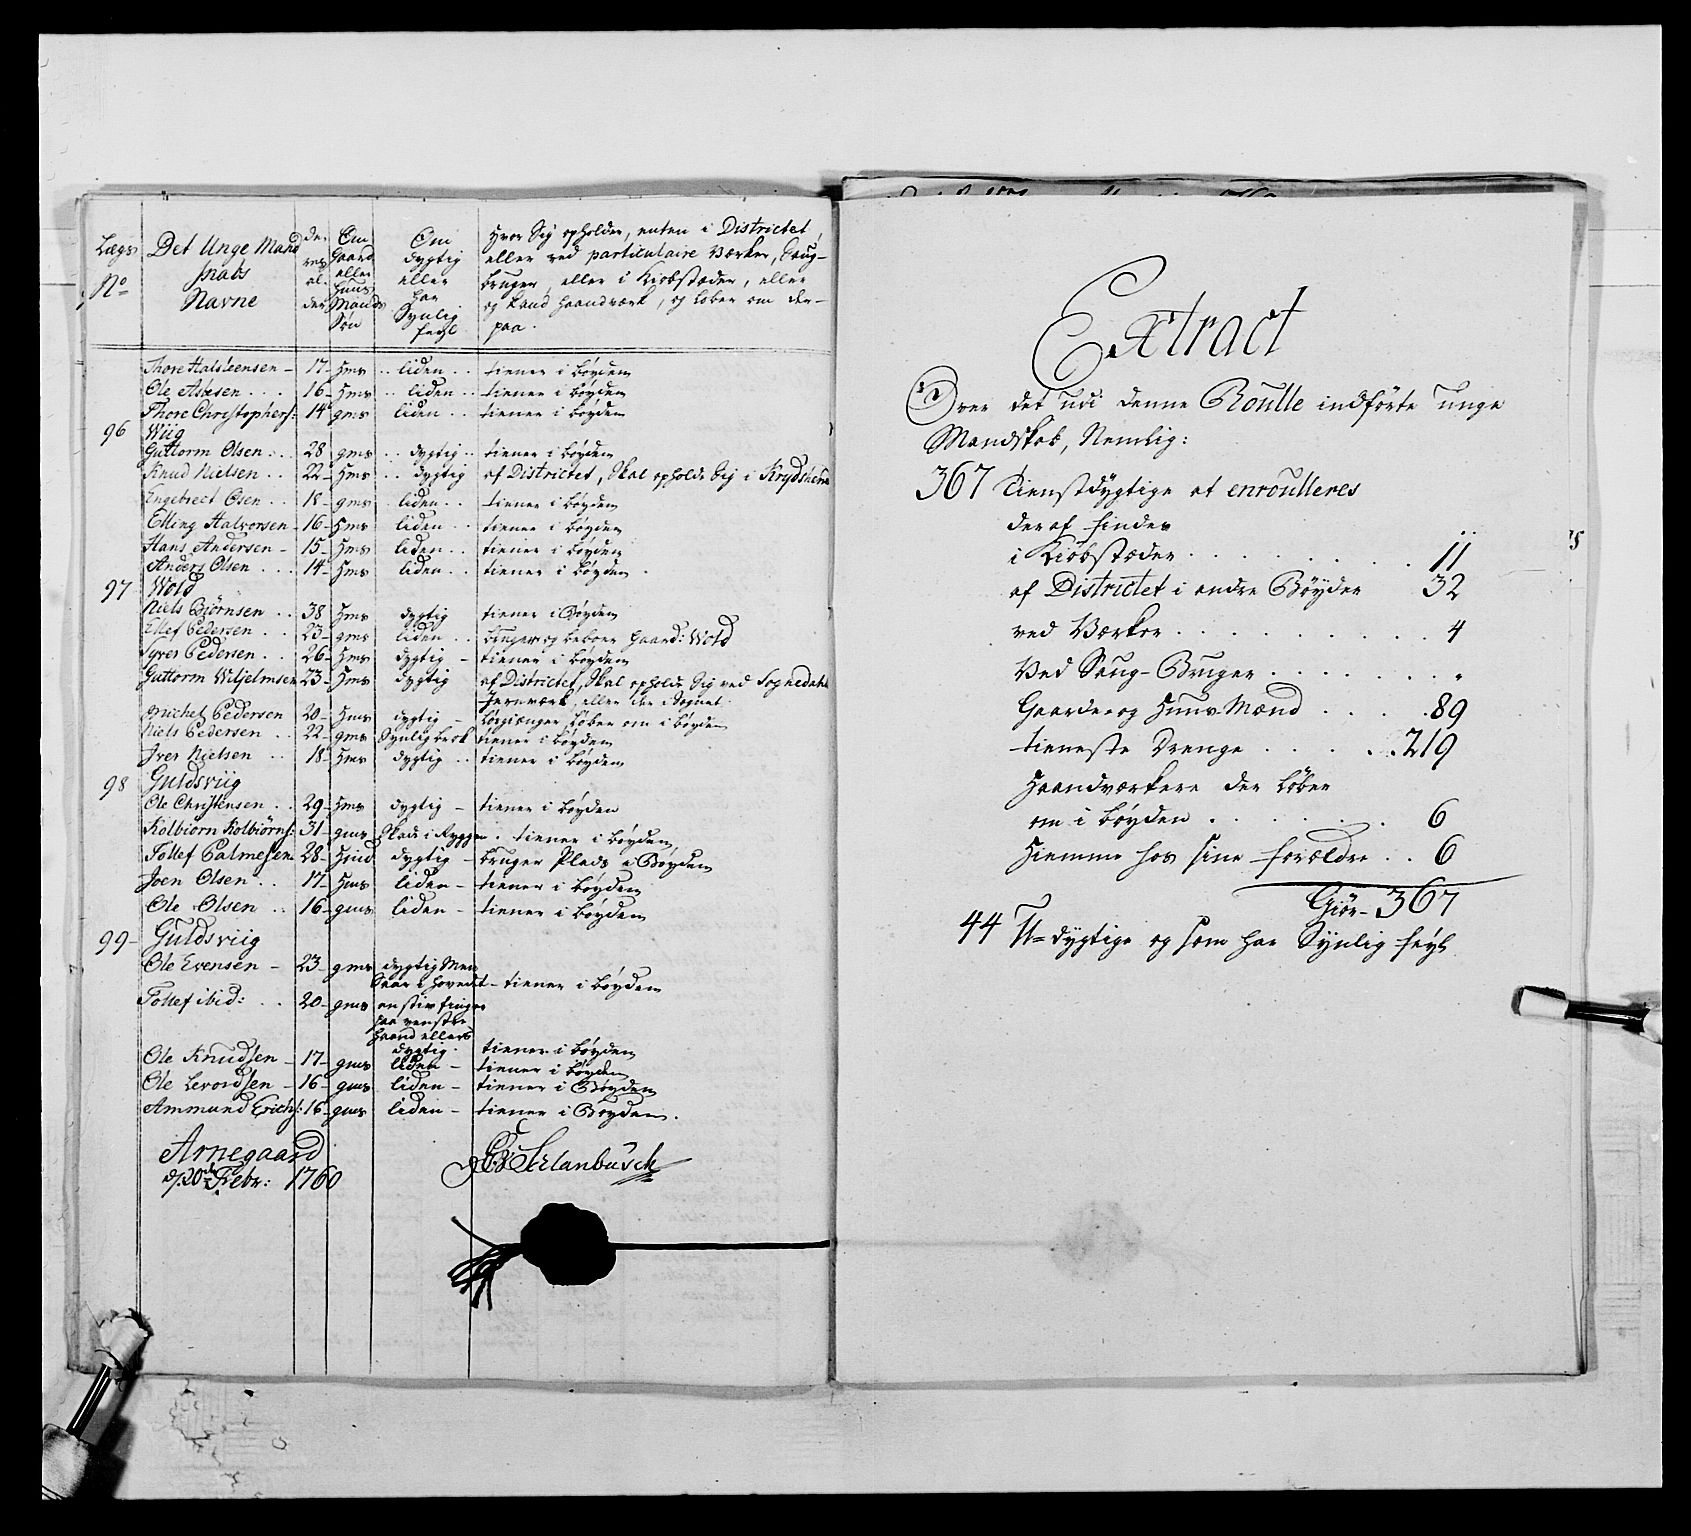 Lægs No | Det Unge Mandskabs Navne | deres alder | Om Gaard eller Huus Mands Søn | Om dygtig eller har Synlig feyl | Hvor Sig opholder, enten i Districtet, eller ved particulaire Værker, Saug-bruger, eller i Kiøbstæder, eller og kand haandværk, og løber om der-paa.
Thore Halsteensen - 17 - Hms .. liden .. tiener i bøyden
Ole Asl­esen ... 16 - Hms .. liden .. tiener i bøyden
Thore Christophers: 14 gms liden .. tiener i bøyden
96 Wiig
Guttorm Olsen .. 28 gms .. dygtig .. tiener i bøyden
Knud Nielsen .. 22 - Hms .. dygtig af Districtet, Skal opholde Sig i
Engebrect Olsen .. 18 - gms . liden .. tiener i bøyden
Elling Halvorsen - 16 - Hms liden .. tiener i bøyden
Hans Andersen - 15 - Hms liden .. tiener i bøyden
Anders Olsen ... 14 - Hms liden .. tiener i bøyden .
97 Wold
Niels Biørnsen .. 38 Hms dygtig tiener i Bøyden
Ellef Pedersen .. 23 - gms liden .. bruger og beboer Gaard: Wold
Syver Pedersen .. 26 - Hms dygtig - tiener i bøyden
Guttorm Wiljelmsen 23 - Hms dygtig af Districtet, Skal opholde Sig ved
Jernværk, eller der i Sognet.
Michel Pedersen 20 - Hms dygtig - løber om i bøyden
Niels Pedersen .. 22 - gms Synlig brok tiener i bøyden
Iver Nielsen .. 18 - Hms dygtig .. tiener i bøyden
98 Guldsviig
Ole Christensen .. 29 - Hms dygtig - tiener i bøyden
Kolbiørn Kolbiørns: 31 - gms Skade i Ryggen . tiener i bøyden
Tollef Palmesen 28 - Hms dygtig - bruger Pleds i Bøyden
Joen Olsen .. 17 - Hms liden - tiener i bøyden
Ole Olsen .. 16 - gms liden - tiener i bøyden
99 - Guldsviig
Ole Evensen - 23 - gms dygtig Men
Saar i hovedet - tiener i bøyden
Tollef ibid: .. 20 - gms en stiv finger
paa venstre
haand ellers
dygtig. tiener i bøyden
Ole Knudsen - 17 - gms liden - tiener i bøyden
Ole Levordsen - 16 - gms liden - tiener i Bøyden
Ammund Erichs: 16 - gms liden - tiener i Bøyden.
Arnegaard
d. 20de Febr: 1760
Extract
Over det udi denne Roulle indførte unge
Mandskab, Nemlig:
367 Tienstdygtige at enroulleres
deraf findes
i Kiøbstæder ....... 11
af Districtet i andre Bøyder 32
ved Værker ......... 4
Ved Saug-Bruger ....... "
Gaarder og Huus Mænd .. .89
tieneste Drenge ..... 219
Haandværkere der løber
om i bøyden ....... 6
Hiemme hos sine forældre .. 6
Giør - 367
44 U=dygtige og som har Synlig feyl